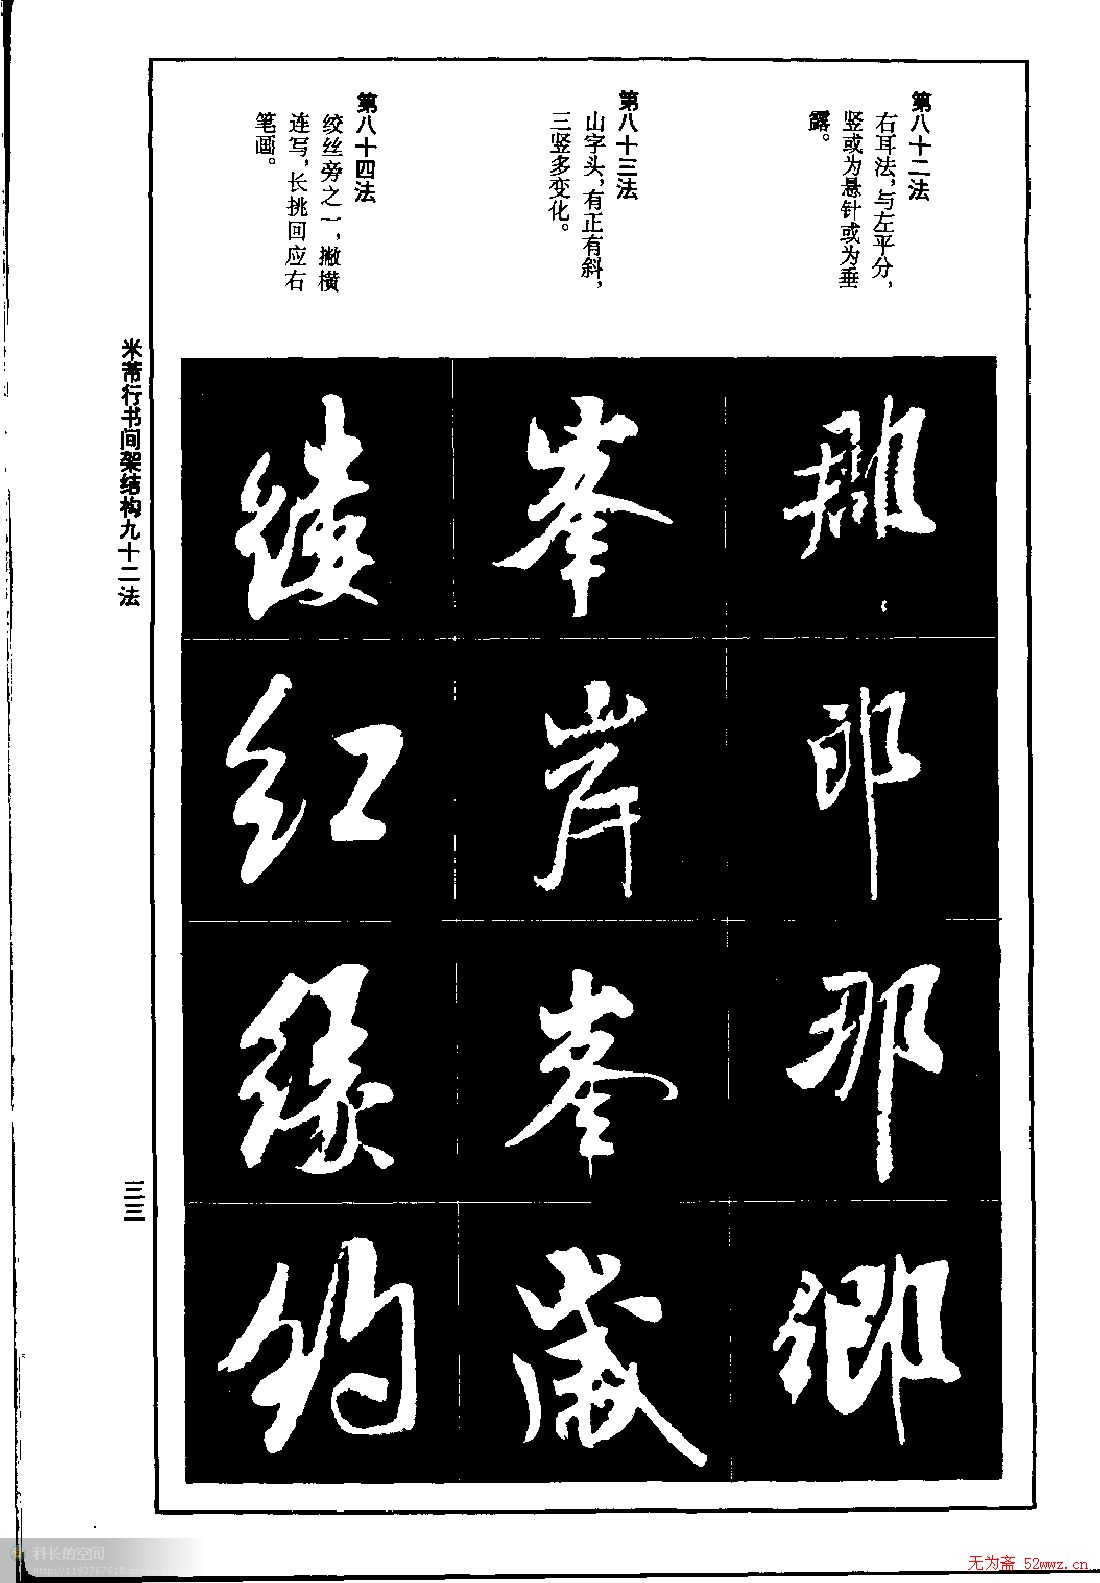 第八十二法
右耳法，与左平分，
竖或为悬针或为垂
露。
第八十三法
山字头，有正有斜，
三竖多变化。
第八十四法
绞丝旁之一，撇横
连写，长挑回应右
笔画。
郎
那
卿
峯
岸
峯
岁
缕
红
缘
约
米芾行书间架结构九十二法
三三
科长的空间
无为斋 52wwz.cn